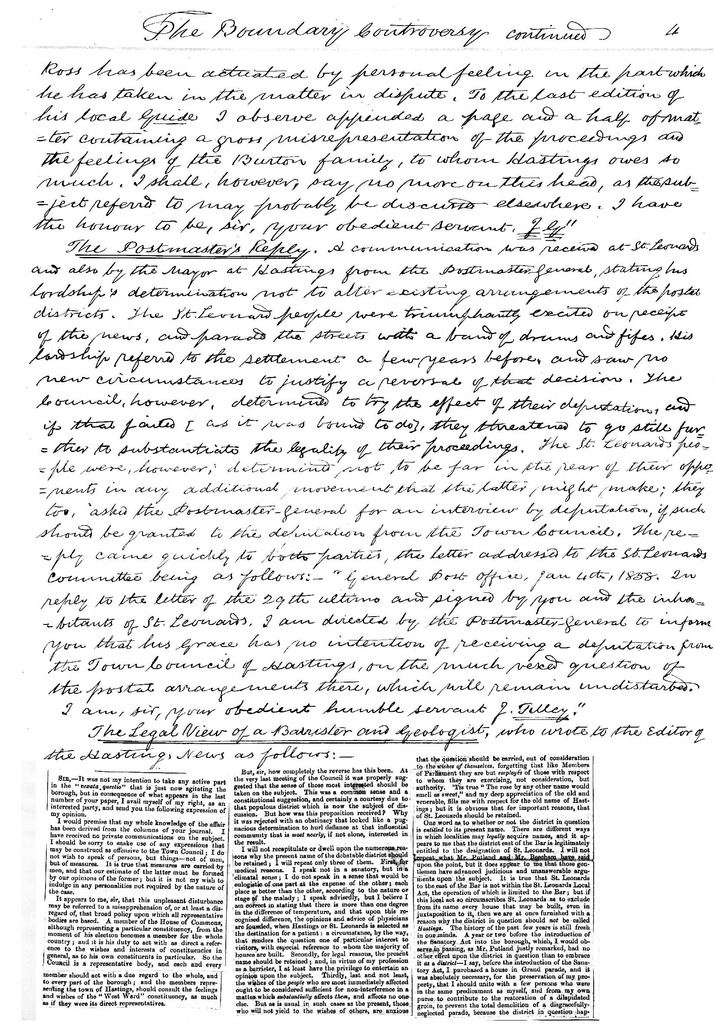 The Boundary Controversy continued 4
Ross has been actuated by personal feeling in the part which
he has taken in the matter in dispute. To the last edition of
his local Guide I observe appended a page and a half of mat-
=ter containing a gross misrepresentation of the proceedings and
the feelings of the Burton family, to whom Hastings owes so
much. I shall, however, say no more on this head, as the sub-
=ject referred to may probably be discussed elsewhere. I have
the honour to be, sir, your obedient servant.
The Postmaster's Reply. A communication was received at St. Leonards
and also by the Mayor at Hastings from the Postmaster General, stating his
lordship's determination not to alter existing arrangements of the postal
districts. The St. Leonard people were triumphantly excited on receipt
of the news, and paraded the streets with a band of drums and fifes. His
lordship referred to the settlement a few years before, and saw no
new circumstances to justify a reversal of that decision. The
Council, however, determined to try the effect of their deputation, and
if that failed [as it was bound to do], they threatened to go still fur-
=ther to substantiate the legality of their proceedings. The St. Leonards peo-
=ple were, however, determined not to be far in the rear of their oppo-
=nents in any additional movement that the latter might make; they
too, asked the Postmaster-General for an interview by deputation, if such
should be granted to the deputation from the Town Council. The re-
=ply came quickly to both parties, the letter addressed to the St. Leonards
Committee being as follows:— "General Post Office, Jan 4th, 1858. In
reply to the letter of the 29th ultimo and signed by you and the inha-
=bitants of St. Leonards. I am directed by the Postmaster General to inform
you that his Grace has no intention of receiving a deputation from
the Town Council of Hastings, on the much vexed question of
the postal arrangements there, which will remain undisturbed.
I am, sir, your obedient humble servant J. Tilley."
The Legal View of a Barrister and Geologist, who wrote to the Editor of
the Hastings News as follows:—
SIR,—It was not my intention to take any active part
in the "vexata questio" that is just now agitating the
borough, but in consequence of what appears in the last
number of your paper, I avail myself of my right, as an
interested party, and send you the following expression of
my opinion.
I would premise that my whole knowledge of the affair
has been derived from the columns of your journal. I
have received no private communications on the subject.
I should be sorry to make use of any expressions that
may be construed as offensive to the Town Council; I do
not wish to speak of persons, but things—not of men,
but of measures. It is true that measures are carried by
men, and that our estimate of the latter must be formed
by our opinions of the former; but it is not my wish to
indulge in any personalities not required by the nature of
the case.
It appears to me, sir, that this unpleasant disturbance
may be referred to a misapprehension of, or at least a dis-
regard of, that broad policy upon which all representative
bodies are based. A member of the House of Commons,
although representing a particular constituency, from the
moment of his election becomes a member for the whole
country; and it is his duty to act with as direct a refer-
ence to the wishes and interests of constituencies in
general, as to his own constituents in particular. So the
Council is a representative body, and each and every
member should act with a due regard to the whole, and
to every part of the borough; and the members repre-
senting the town of Hastings, should consult the feelings
and wishes of the "West Ward" constituency, as much
as if they were its direct representatives.
But, sir, how completely the reverse has this been. At
the very last meeting of the Council it was properly sug-
gested that the sense of those most interested should be
taken on the subject. This was a common sense and a
constitutional suggestion, and certainly a courtesy due to
that populous district which is now the subject of dis-
cussion. But how was this proposition received? Why
it was rejected with an obstinacy that looked like a pug-
nacious determination to hurl defiance at that influential
community that is most nearly, if not alone, interested in
the result.
I will not recapitulate or dwell upon the numerous rea-
sons why the present name of the debatable district should
be retained; I will repeat only three of them. First, for
medical reasons. I speak not in a sanatory, but in a
climatal sense; I do not speak in a sense that would be
eulogistic of one part at the expense of the other; each
place is better than the other, according to the nature or
stage of the malady; I speak advisedly, but I believe I
am correct in stating that there is more than one degree
in the difference of temperature, and that upon this re-
cognised difference, the opinions and advice of physicians
are founded, when Hastings or St. Leonards is selected as
the destination for a patient: a circumstance, by the way,
that renders the question one of particular interest to
visitors, with especial reference to whom the majority of
houses are built. Secondly, for legal reasons, the present
name should be retained; and, in virtue of my profession
as a barrister, I at least have the privilege to entertain an
opinion upon the subject. Thirdly, last and not least,
the wishes of the people who are most immediately affected
ought to be considered sufficient for non-interference in a
matter which substantially affects them, and affects no one
else. But as is usual in such cases as the present, those
who will not yield to the wishes of others, are anxious
that the question should be carried, out of consideration
to the wishes of themselves, forgetting that like Members
of Parliament they are but employés of those with respect
to whom they are exercising, not consideration, but
authority. 'Tis true "The rose by any other name would
smell as sweet," and my deep appreciation of the old and
venerable, fills me with respect for the old name of Hast-
ings; but it is obvious that for important reasons, that
of St. Leonards should be retained.
One word as to whether or not the district in question
is entitled to its present name. There are different ways
in which localities may legally acquire names, and it ap-
pears to me that the district east of the Bar is legitimately
entitled to the designation of St. Leonards. I will not
repeat what Mr. Putland and Mr. Beecham have said
upon the point, but it does appear to me that those gen-
tlemen have advanced judicious and unanswerable argu-
ments upon the subject. It is true that St. Leonards
to the east of the Bar is not within the St. Leonards Local
Act, the operation of which is limited to the Bar; but if
this local act so circumscribes St. Leonards as to exclude
from its name every house that may be built, even in
juxtaposition to it, then we are at once furnished with a
reason why the district in question should not be called
Hastings. The history of the past few years is still fresh
in our minds. A year or two before the introduction of
the Sanatory Act into the borough, which, I would ob-
serve in passing, as Mr. Putland justly remarked, had no
other effect upon the district in question than to embrace
it as a district—I say, before the introduction of the Sana-
tory Act, I purchased a house in Grand parade, and it
was absolutely necessary, for the preservation of my pro-
perty, that I should unite with a few persons who were
in the same predicament as myself, and from my own
purse to contribute to the restoration of a dilapidated
groin, to prevent the total demolition of a disgracefully-
neglected parade, because the district in question hap-